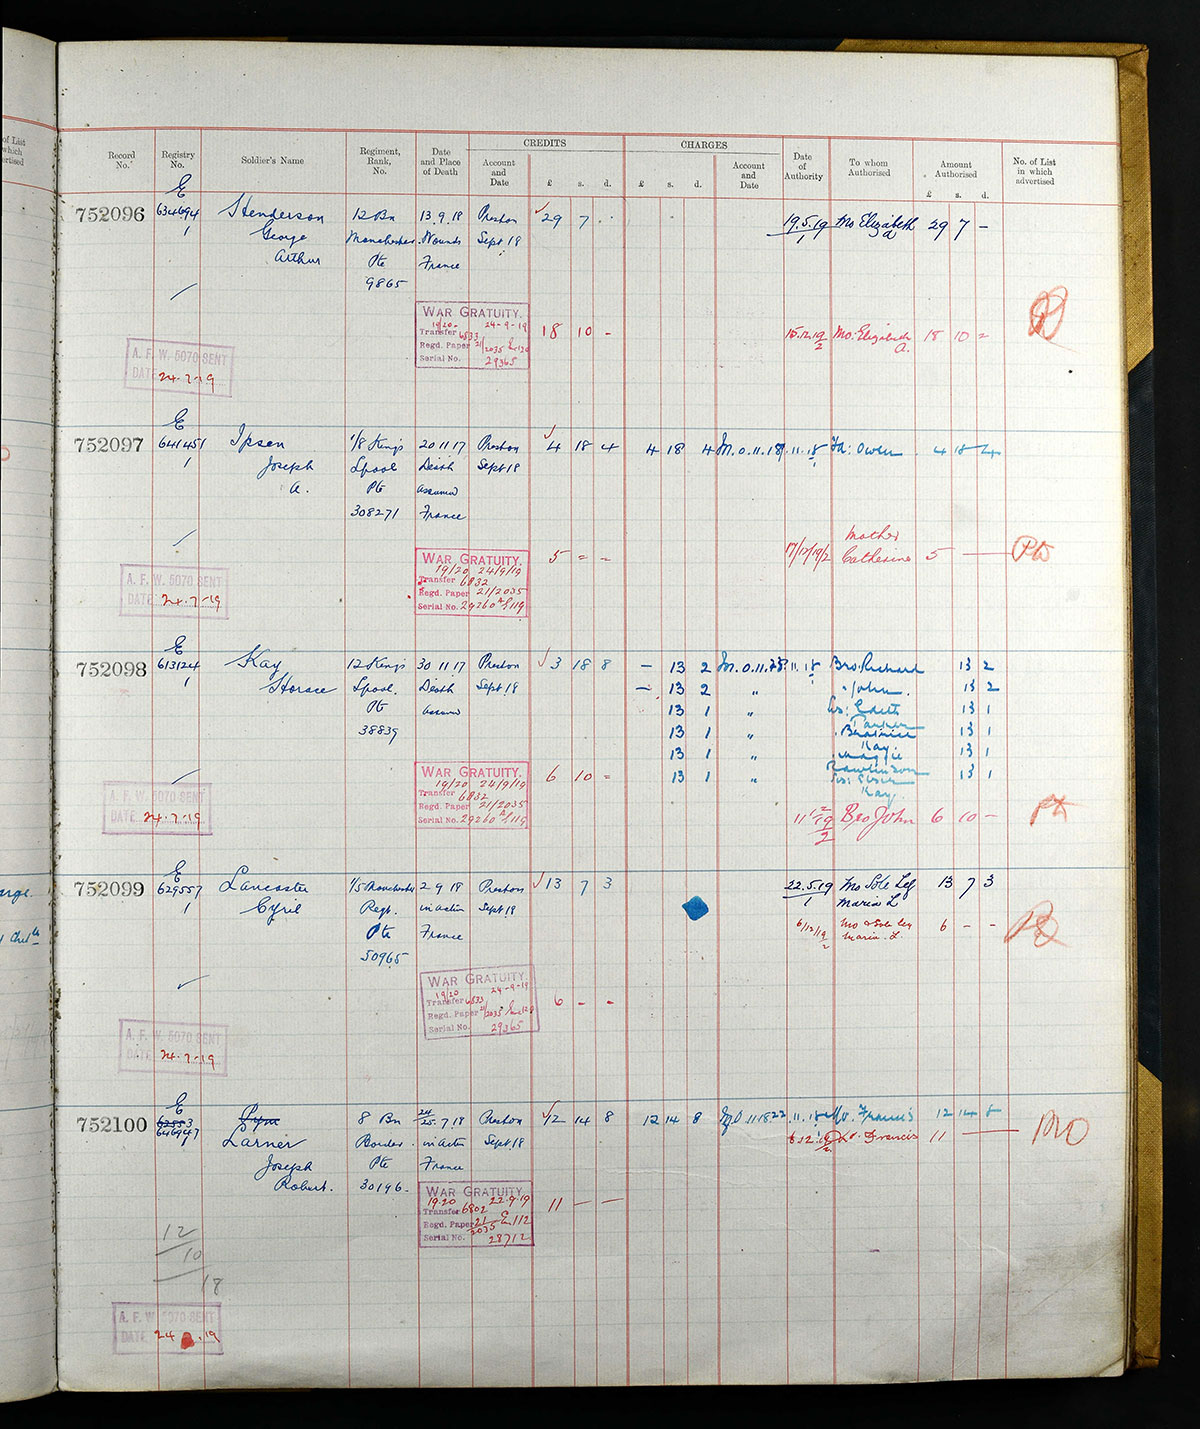 of List
which
ertised
CREDITS
CHARGES
Record No.
Registry No.
Soldier's Name
Regiment, Rank, No.
Date and Place of Death
Account and Date
£ s. d.
£ s. d.
Account and Date
Date of Authority
To whom Authorised
Amount Authorised
£ s. d.
No. of List in which advertised
E
752096 634694 Henderson 12 Bn 13.9.18 Preston 29 7 19.5.19 Mo Elizabeth 29 7 -
1 George Manchester Wounds Sept 19 1 A
Arthur Pte France
9865
WAR GRATUITY.
19/20 24-9-19
Transfer 6833 18 10 - 15.12.19 Mo. Elizabeth 18 10 =
Regd. Paper 21/2035 E 120 2 A.
Serial No. 29365
A. F. W. 5070 SENT
DATE 24.7.19
E
752097 641451 Ipsen 1/8 King's 20 11 17 Preston 4 18 4 4 18 4 M.O. 11.18 .11.18 Fa: Owen 4 18 4
1 Joseph Lpool Death Sept 18
A. Pte assumed
308271 France
Mother
WAR GRATUITY. 5 = = 17/12/19/2 Catherine 5 Pto
19/20 24/9/19
Transfer 6832
Regd. Paper 21/2035
Serial No. 29260 E 119
A. F. W. 5070 SENT
DATE 24.7.19
E
752098 613124 Kay 12 King's 30 11 17 Preston 3 18 8 - 13 2 M.O. 11.18 .11.18 Bro: Richard 13 2
1 Horace Lpool. Death Sept 18 - 13 2 " " John. 13 2
Pte assumed 13 1 " Sis: Edith 13 1
Parker
38839 13 1 " Beatrice 13 1
Kay.
13 1 " Maggie 13 1
Rawlinson
WAR GRATUITY. 6 10 = 13 1 " 13 1
19/20 24/9/19 Kay.
Transfer 6832
Regd. Paper 21/2035 11 12/19 Bro John 6 10 -
Serial No. 29260 E 119 2
A. F. W. 5070 SENT
DATE 24.7.19
E
752099 629557 Lancaster 1/5 Manchester 2 9 18 Preston 13 7 3 22.5.19 Mo Sole Leg 13 7 3
1 Cyril Regt. in action Sept 18 1 Maria L
Pte France 6/12/19 Mo & Sole Leg 6 - -
50965 2 Maria. L.
WAR GRATUITY.
19/20 24-9-19
Transfer 6833 6 - -
Regd. Paper 21/2035 E 120
Serial No. 29365
A. F. W. 5070 SENT
DATE 24.7.19
E
752100 62553 8 Bn 24/25.7.18 Preston 12 14 8 12 14 8 M.O. 11.18 22.11.18 Francis 12 14 8
646947 Larner Border in action Sept 18 6.12.19 Francis 11
Joseph Pte France 2 MO
Robert. 30196
WAR GRATUITY.
19.20 22.9.19 11 - -
Transfer 6802
Regd. Paper 21/2035 E 112
Serial No. 28712
12
10
18
A. F. W. 5070 SENT
DATE 24 . 19